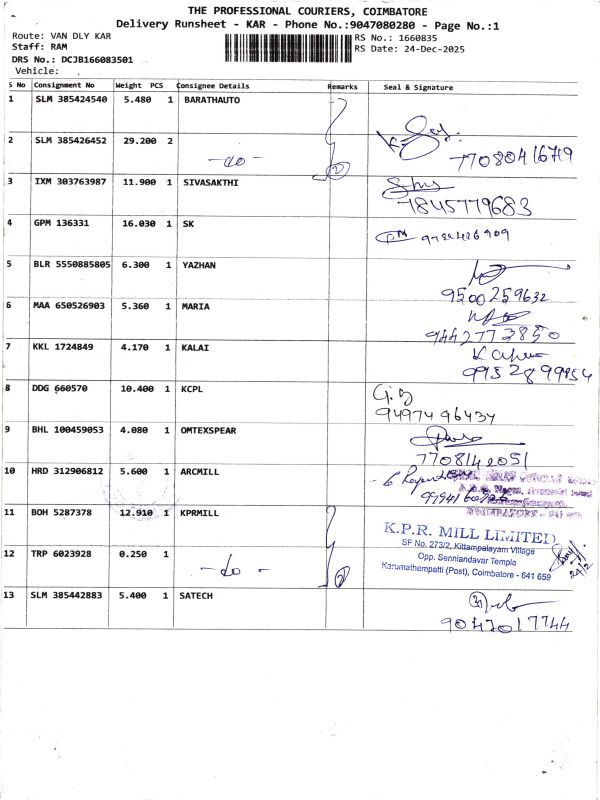 THE PROFESSIONAL COURIERS, COIMBATORE
Delivery Runsheet - KAR - Phone No.:9047080280 - Page No.:1
Route: VAN DLY KAR
RS No.: 1660835
Staff: RAM
RS Date: 24-Dec-2025
DRS No.: DCJB166083501
Vehicle:
S No Consignment No Weight PCS Consignee Details Remarks Seal & Signature
1 SLM 385424540 5.480 1 BARATHAUTO
2 SLM 385426452 29.200 2 -do- 2 77080416719
3 IXM 303763987 11.900 1 SIVASAKTHI 7845779683
4 GPM 136331 16.030 1 SK
5 BLR 5550885805 6.300 1 YAZHAN 9500259632
6 MAA 650526903 5.360 1 MARIA 9442773850
7 KKL 1724849 4.170 1 KALAI 9952899954
8 DDG 660570 10.400 1 KCPL 9497496437
9 BHL 100459053 4.080 1 OMTEXSPEAR 7708142051
10 HRD 312906812 5.600 1 ARCMILL
11 BOH 5287378 12.910 1 KPRMILL
K.P.R. MILL LIMITED
SF No. 273/2, Kittampalayam Village
12 TRP 6023928 0.250 1 -do- 2
Opp. Senniandavar Temple
Karumathampatti (Post), Coimbatore - 641 659
13 SLM 385442883 5.400 1 SATECH 9047017744